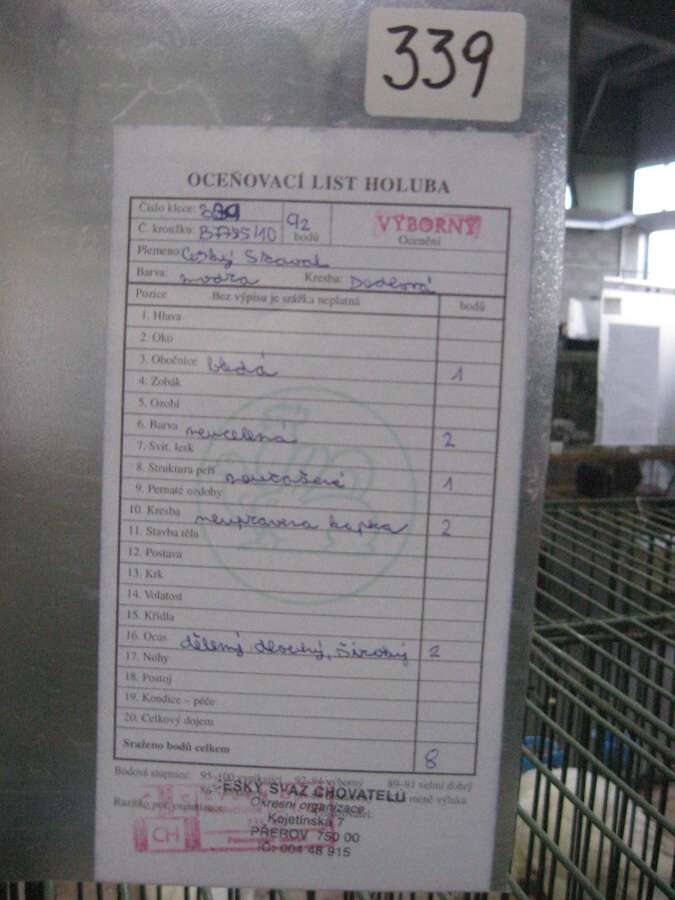 339
OCEŇOVACÍ LIST HOLUBA
Číslo klece: 339
92 bodů
VÝBORNÝ
Ocenění
Č. kroužku: B7795/10
Plemeno: Český Stavak
Barva: modrá Kresba:
Pozice Bez výpisu je srážka neplatná bodů
1. Hlava
2. Oko
3. Obočnice bledá 1
4. Zobák
5. Ozobí
6. Barva necelená 2
7. Svit, lesk
8. Struktura peří 1
9. Pernaté ozdoby
10. Kresba neupravena kapka 2
11. Stavba těla
12. Postava
13. Krk
14. Volatost
15. Křídla
16. Ocas dělený, široký 2
17. Nohy
18. Postoj
19. Kondice – péče
20. Celkový dojem
Sraženo bodů celkem 8
Bodová stupnice: 95-100 vynikající 92-94 výborný 89-91 velmi dobrý
méně výluka
Razítko poř. organizace
ESKÝ SVAZ CHOVATELŮ
Okresní organizace
Kojetínská 7
PŘEROV 750 00
IČ: 004 48 915
CH